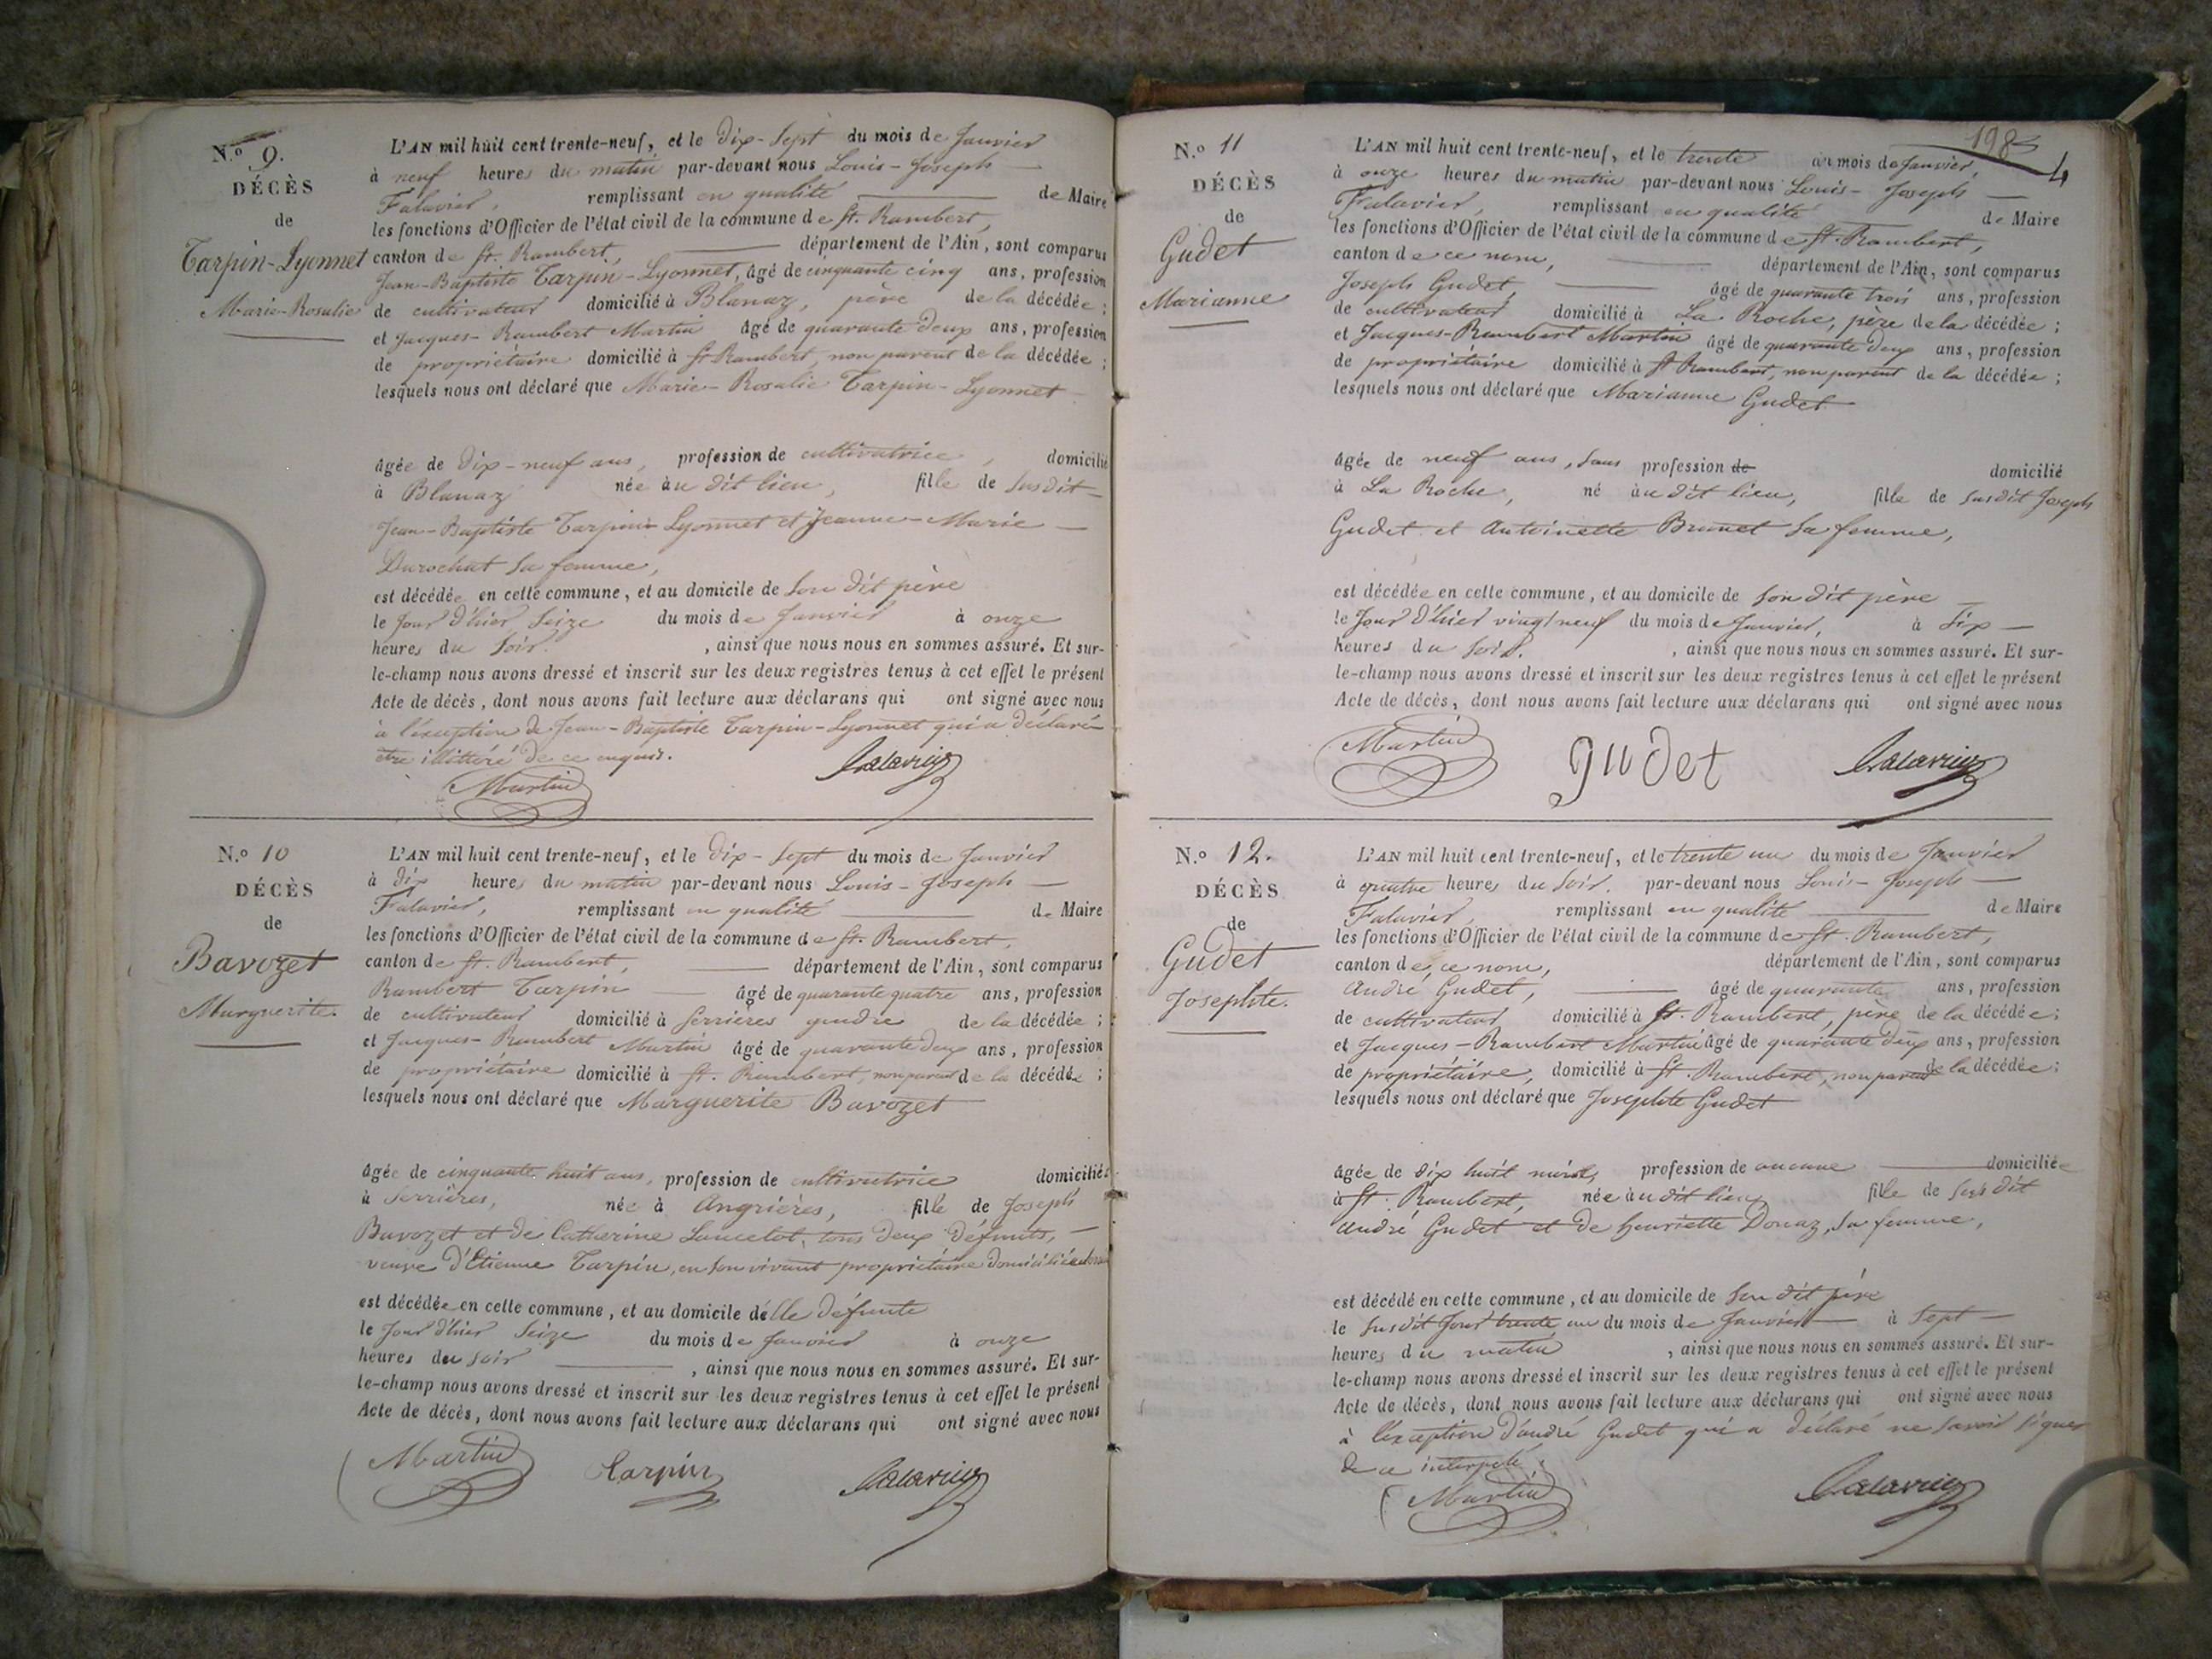 N.o 9.
DÉCÈS
de
Tarpin-Lyonnet
Marie-Rosalie
L'AN mil huit cent trente-neuf, et le dix-sept du mois de Janvier
à neuf heures du matin par-devant nous Louis-Joseph
Falavier, remplissant en qualité de Maire
les fonctions d'Officier de l'état civil de la commune de St. Rambert,
canton de St. Rambert, département de l'Ain, sont comparus
Jean-Baptiste Tarpin-Lyonnet, âgé de cinquante cinq ans, profession
de cultivateur domicilié à Blanaz, père de la décédée ;
et Jacques-Rambert Martin âgé de quarante deux ans, profession
de propriétaire domicilié à St Rambert, non parent de la décédée ;
lesquels nous ont déclaré que Marie-Rosalie Tarpin-Lyonnet
âgée de dix-neuf ans, profession de cultivatrice, domicilié
à Blanaz née au dit lieu, fille de susdit
Jean-Baptiste Tarpin Lyonnet et Jeanne-Marie
Durochat sa femme,
est décédée en cette commune, et au domicile de son dit père
le jour d'hier seize du mois de Janvier à onze
heures du soir. , ainsi que nous nous en sommes assuré. Et sur-
le-champ nous avons dressé et inscrit sur les deux registres tenus à cet effet le présent
Acte de décès, dont nous avons fait lecture aux déclarans qui ont signé avec nous
à l'exception de Jean-Baptiste Tarpin-Lyonnet qui a déclaré
être illittéré de ce enquis.
Martin Falavier
N.o 10
DÉCÈS
de
Bavozet
Marguerite.
L'AN mil huit cent trente-neuf, et le dix-sept du mois de Janvier
à dix heures du matin par-devant nous Louis-Joseph
Falavier, remplissant en qualité de Maire
les fonctions d'Officier de l'état civil de la commune de St. Rambert,
canton de St. Rambert, département de l'Ain, sont comparus
Rambert Tarpin âgé de quarante quatre ans, profession
de cultivateur domicilié à Serrières gendre de la décédée ;
et Jacques-Rambert Martin âgé de quarante deux ans, profession
de propriétaire domicilié à St. Rambert, non parent de la décédée ;
lesquels nous ont déclaré que Marguerite Bavozet
âgée de cinquante huit ans, profession de cultivatrice domiciliée
à Serrières, née à Angrières, fille de Joseph
Bavozet et de Catherine Lancelot, tous deux défunts,
veuve d'Etienne Tarpin, en son vivant propriétaire domicilié
est décédée en cette commune, et au domicile de lle défunte
le jour d'hier seize du mois de Janvier à onze
heures du soir , ainsi que nous nous en sommes assuré. Et sur-
le-champ nous avons dressé et inscrit sur les deux registres tenus à cet effet le présent
Acte de décès, dont nous avons fait lecture aux déclarans qui ont signé avec nous
Martin Tarpin Falavier
198
4
N.o 11
DÉCÈS
de
Gudet
Marianne
L'AN mil huit cent trente-neuf, et le trente du mois de Janvier,
à onze heures du matin par-devant nous Louis-Joseph
Falavier, remplissant en qualité de Maire
les fonctions d'Officier de l'état civil de la commune de St. Rambert,
canton de ce nom, département de l'Ain, sont comparus
Joseph Gudet, âgé de quarante trois ans, profession
de cultivateur domicilié à La Roche, père de la décédée ;
et Jacques-Rambert Martin âgé de quarante deux ans, profession
de propriétaire domicilié à St Rambert, non parent de la décédée ;
lesquels nous ont déclaré que Marianne Gudet
âgée de neuf ans, sans profession de domicilié
à La Roche, né au dit lieu, fille de susdit Joseph
Gudet et Antoinette Brunet sa femme,
est décédée en cette commune, et au domicile de son dit père
le jour d'hier vingt neuf du mois de Janvier, à dix
heures du soir. , ainsi que nous nous en sommes assuré. Et sur-
le-champ nous avons dressé et inscrit sur les deux registres tenus à cet effet le présent
Acte de décès, dont nous avons fait lecture aux déclarans qui ont signé avec nous
Martin gudet Falavier
N.o 12.
DÉCÈS
de
Gudet
Josephte.
L'AN mil huit cent trente-neuf, et le trente un du mois de Janvier
à quatre heures du soir. par-devant nous Louis-Joseph
Falavier, remplissant en qualité de Maire
les fonctions d'Officier de l'état civil de la commune de St. Rambert,
canton de ce nom, département de l'Ain, sont comparus
André Gudet, âgé de quarante ans, profession
de cultivateur domicilié à St. Rambert, père de la décédée ;
et Jacques-Rambert Martin âgé de quarante deux ans, profession
de propriétaire, domicilié à St. Rambert, non parent de la décédée ;
lesquels nous ont déclaré que Josephte Gudet
âgée de dix huit mois, profession de aucune domiciliée
à St. Rambert, née au dit lieu, fille de sus dit
André Gudet et de Henriette Donaz, sa femme,
est décédé en cette commune, et au domicile de son dit père
le susdit jour trente un du mois de Janvier à sept
heures du matin , ainsi que nous nous en sommes assuré. Et sur-
le-champ nous avons dressé et inscrit sur les deux registres tenus à cet effet le présent
Acte de décès, dont nous avons fait lecture aux déclarans qui ont signé avec nous
à l'exception d'andré Gudet qui a déclaré ne savoir signer
de ce interpelé.
Martin Falavier